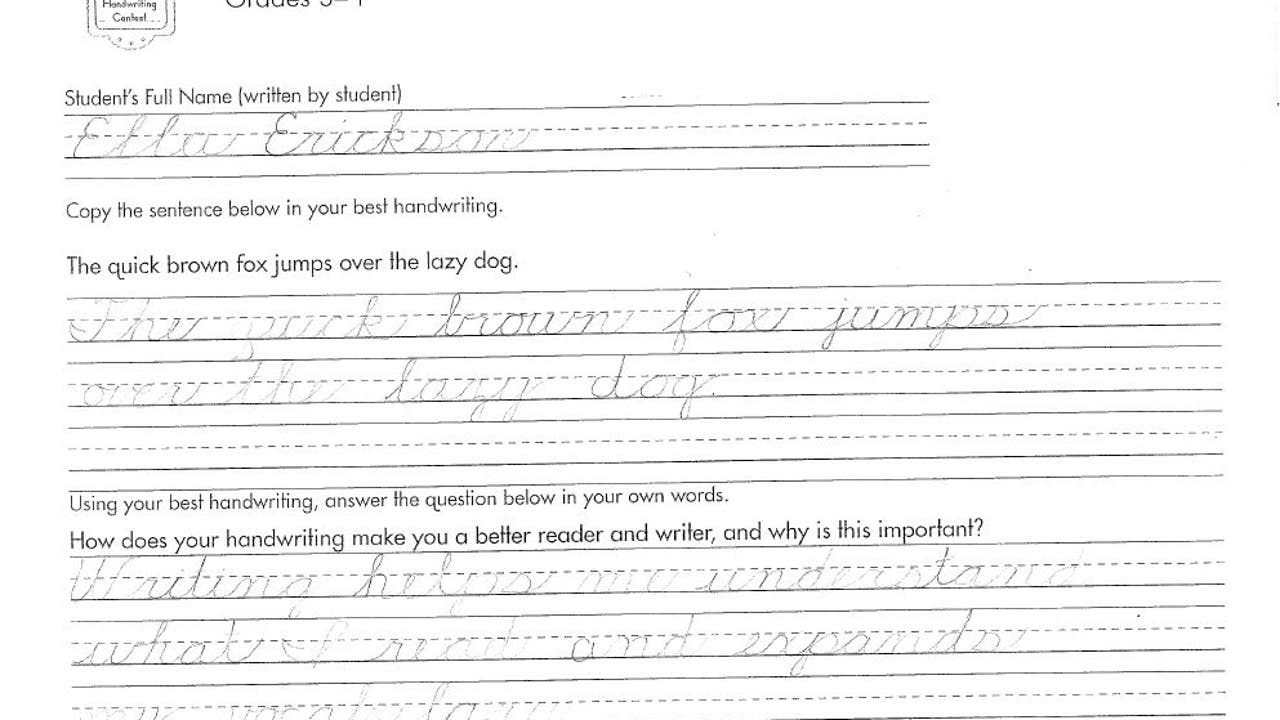 Handwriting
Contest
Grades 3–4
Student's Full Name (written by student)
Ella Erickson
Copy the sentence below in your best handwriting.
The quick brown fox jumps over the lazy dog.
The quick brown fox jumps
over the lazy dog.
Using your best handwriting, answer the question below in your own words.
How does your handwriting make you a better reader and writer, and why is this important?
Writing helps me understand
what I read and expands
my vocabulary